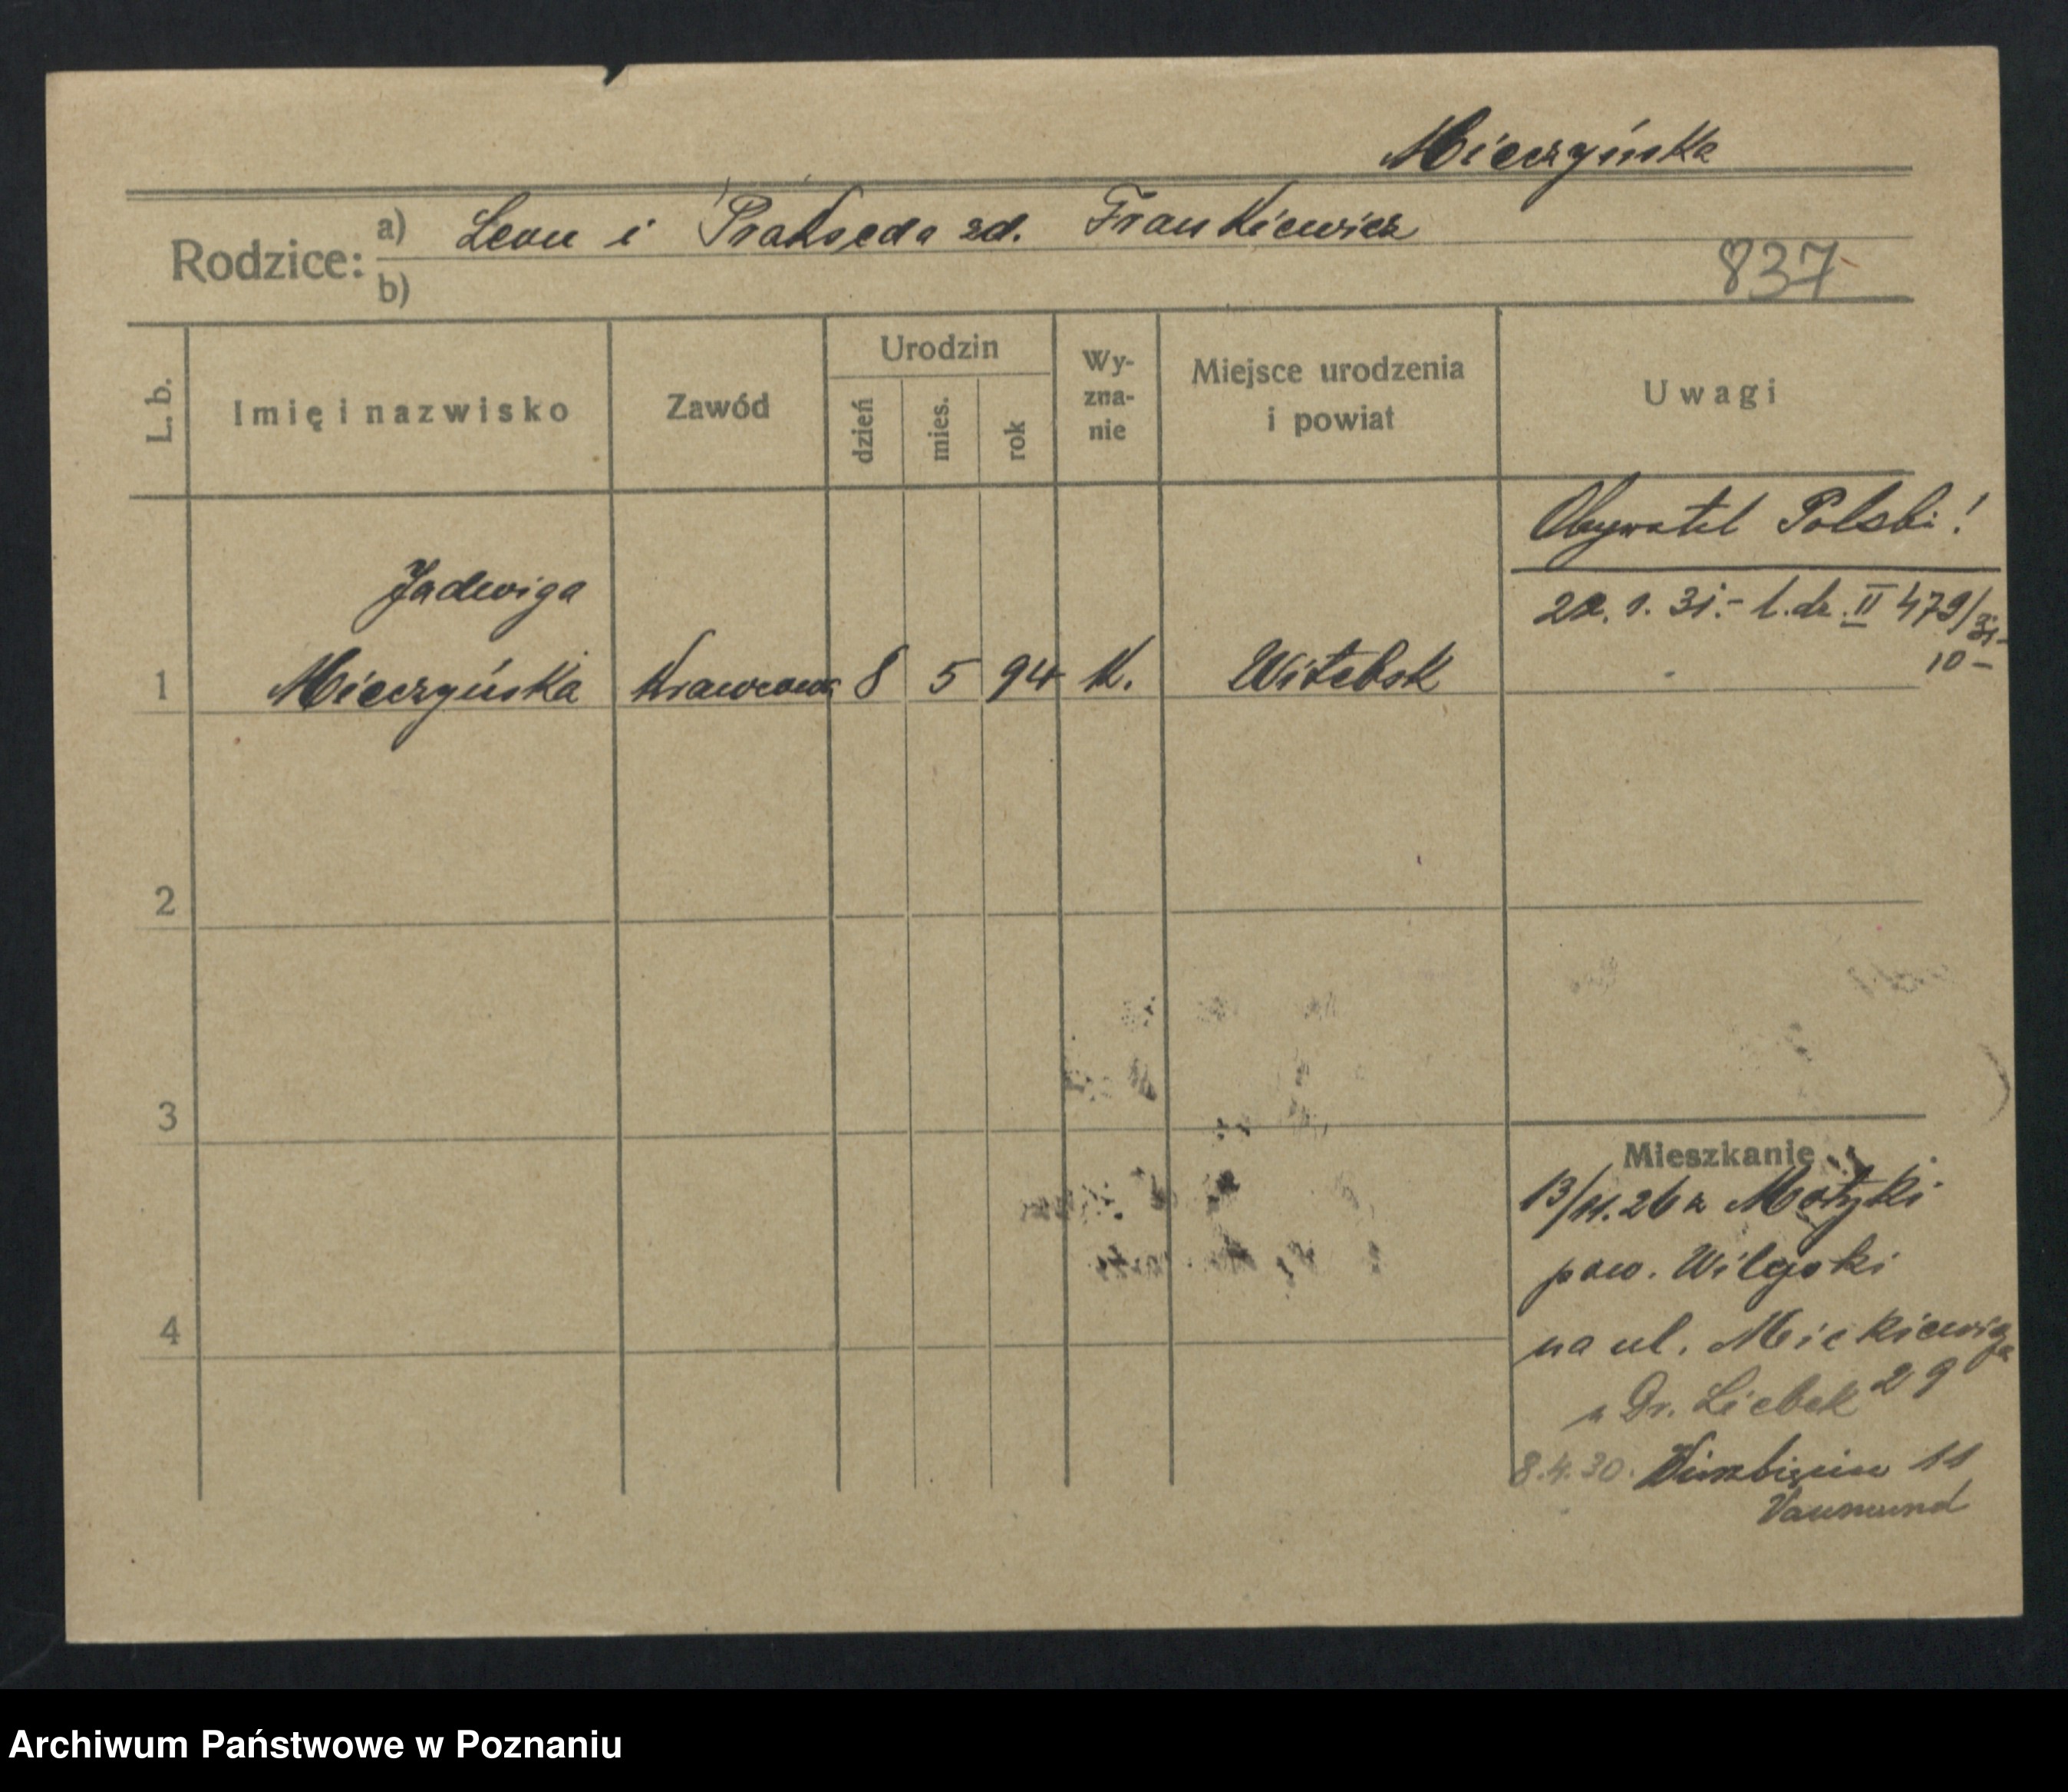 Mieczyńska
Rodzice: a) Leon i Prakseda zd. Frankiewicz
b)
837
L. b.
Imię i nazwisko
Zawód
Urodzin
dzień
mies.
rok
Wy-
zna-
nie
Miejsce urodzenia
i powiat
Uwagi
Obywatel Polski!
22. 1. 31.- l. dz. II 479/31-
10-
Jadwiga
1 Mieczyńska Krawcowa 8 5 94 K. Witebsk
2
3
4
Mieszkanie
13/11.26 z
pow.
na ul. Mickiewicza
29
Dr. Liebek
8.4.30. 11